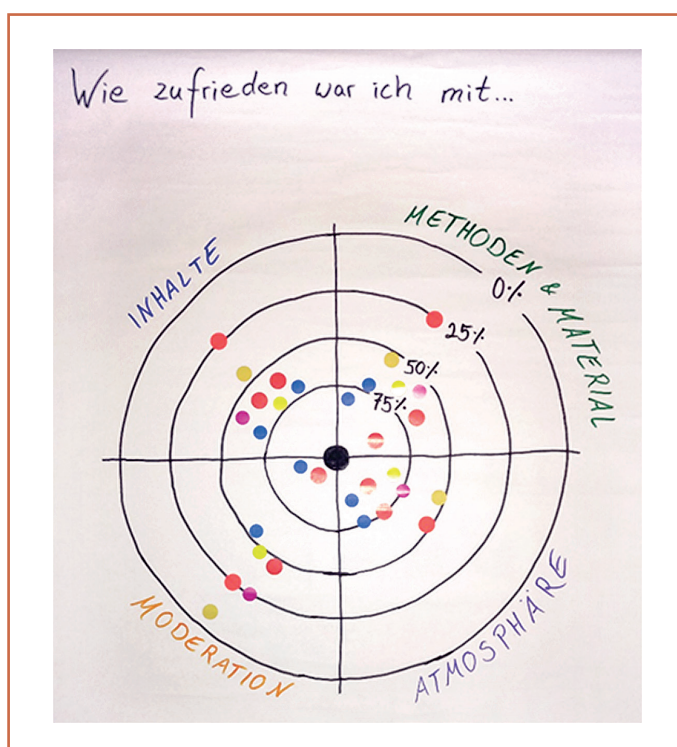 Wie zufrieden war ich mit...
METHODEN & MATERIAL
INHALTE
0%
25%
50%
75%
MODERATION
ATMOSPHÄRE